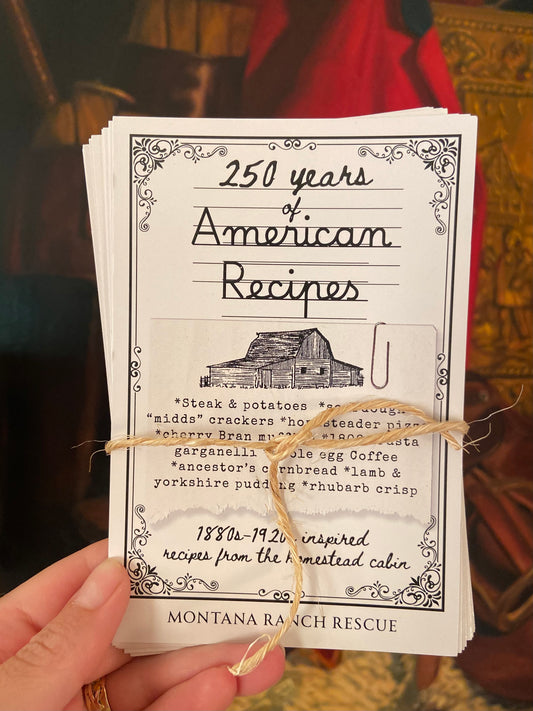 250 years
of
American
Recipes
*Steak & potatoes *sourdough
"midds" crackers *homesteader pizza
*cherry Bran muffins *1800s pasta
garganelli *whole egg Coffee
*ancestor's cornbread *lamb &
yorkshire pudding *rhubarb crisp
1880s-1920s inspired
recipes from the homestead cabin
MONTANA RANCH RESCUE